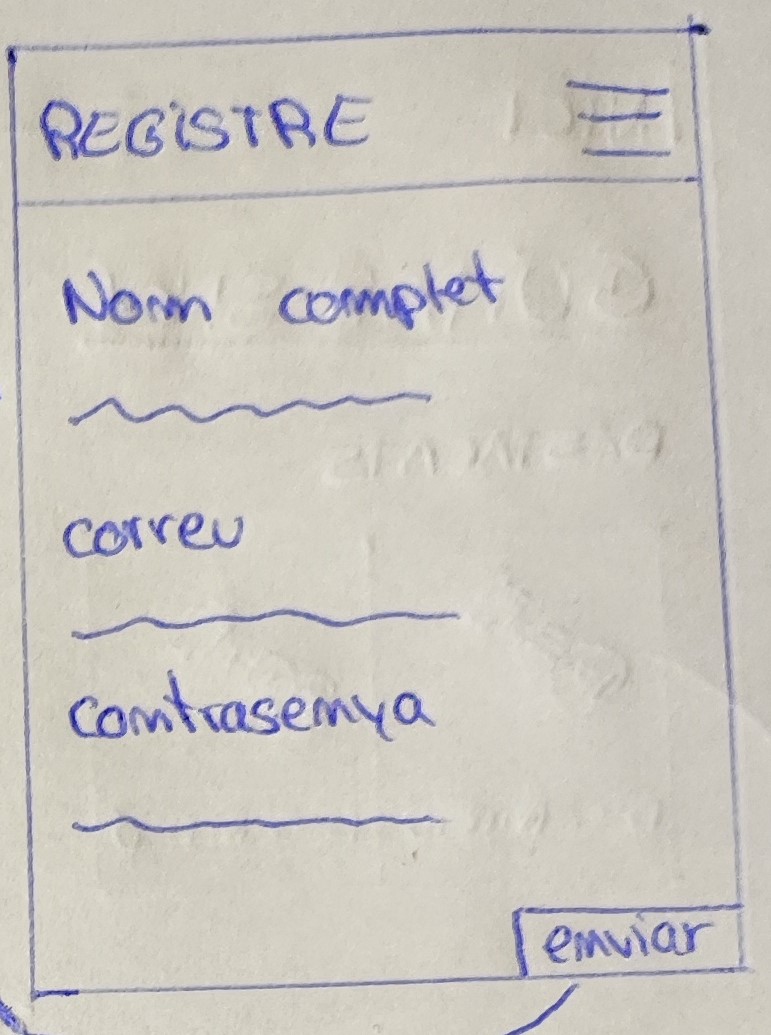 REGISTRE
Nom complet
correu
contrasenya
enviar